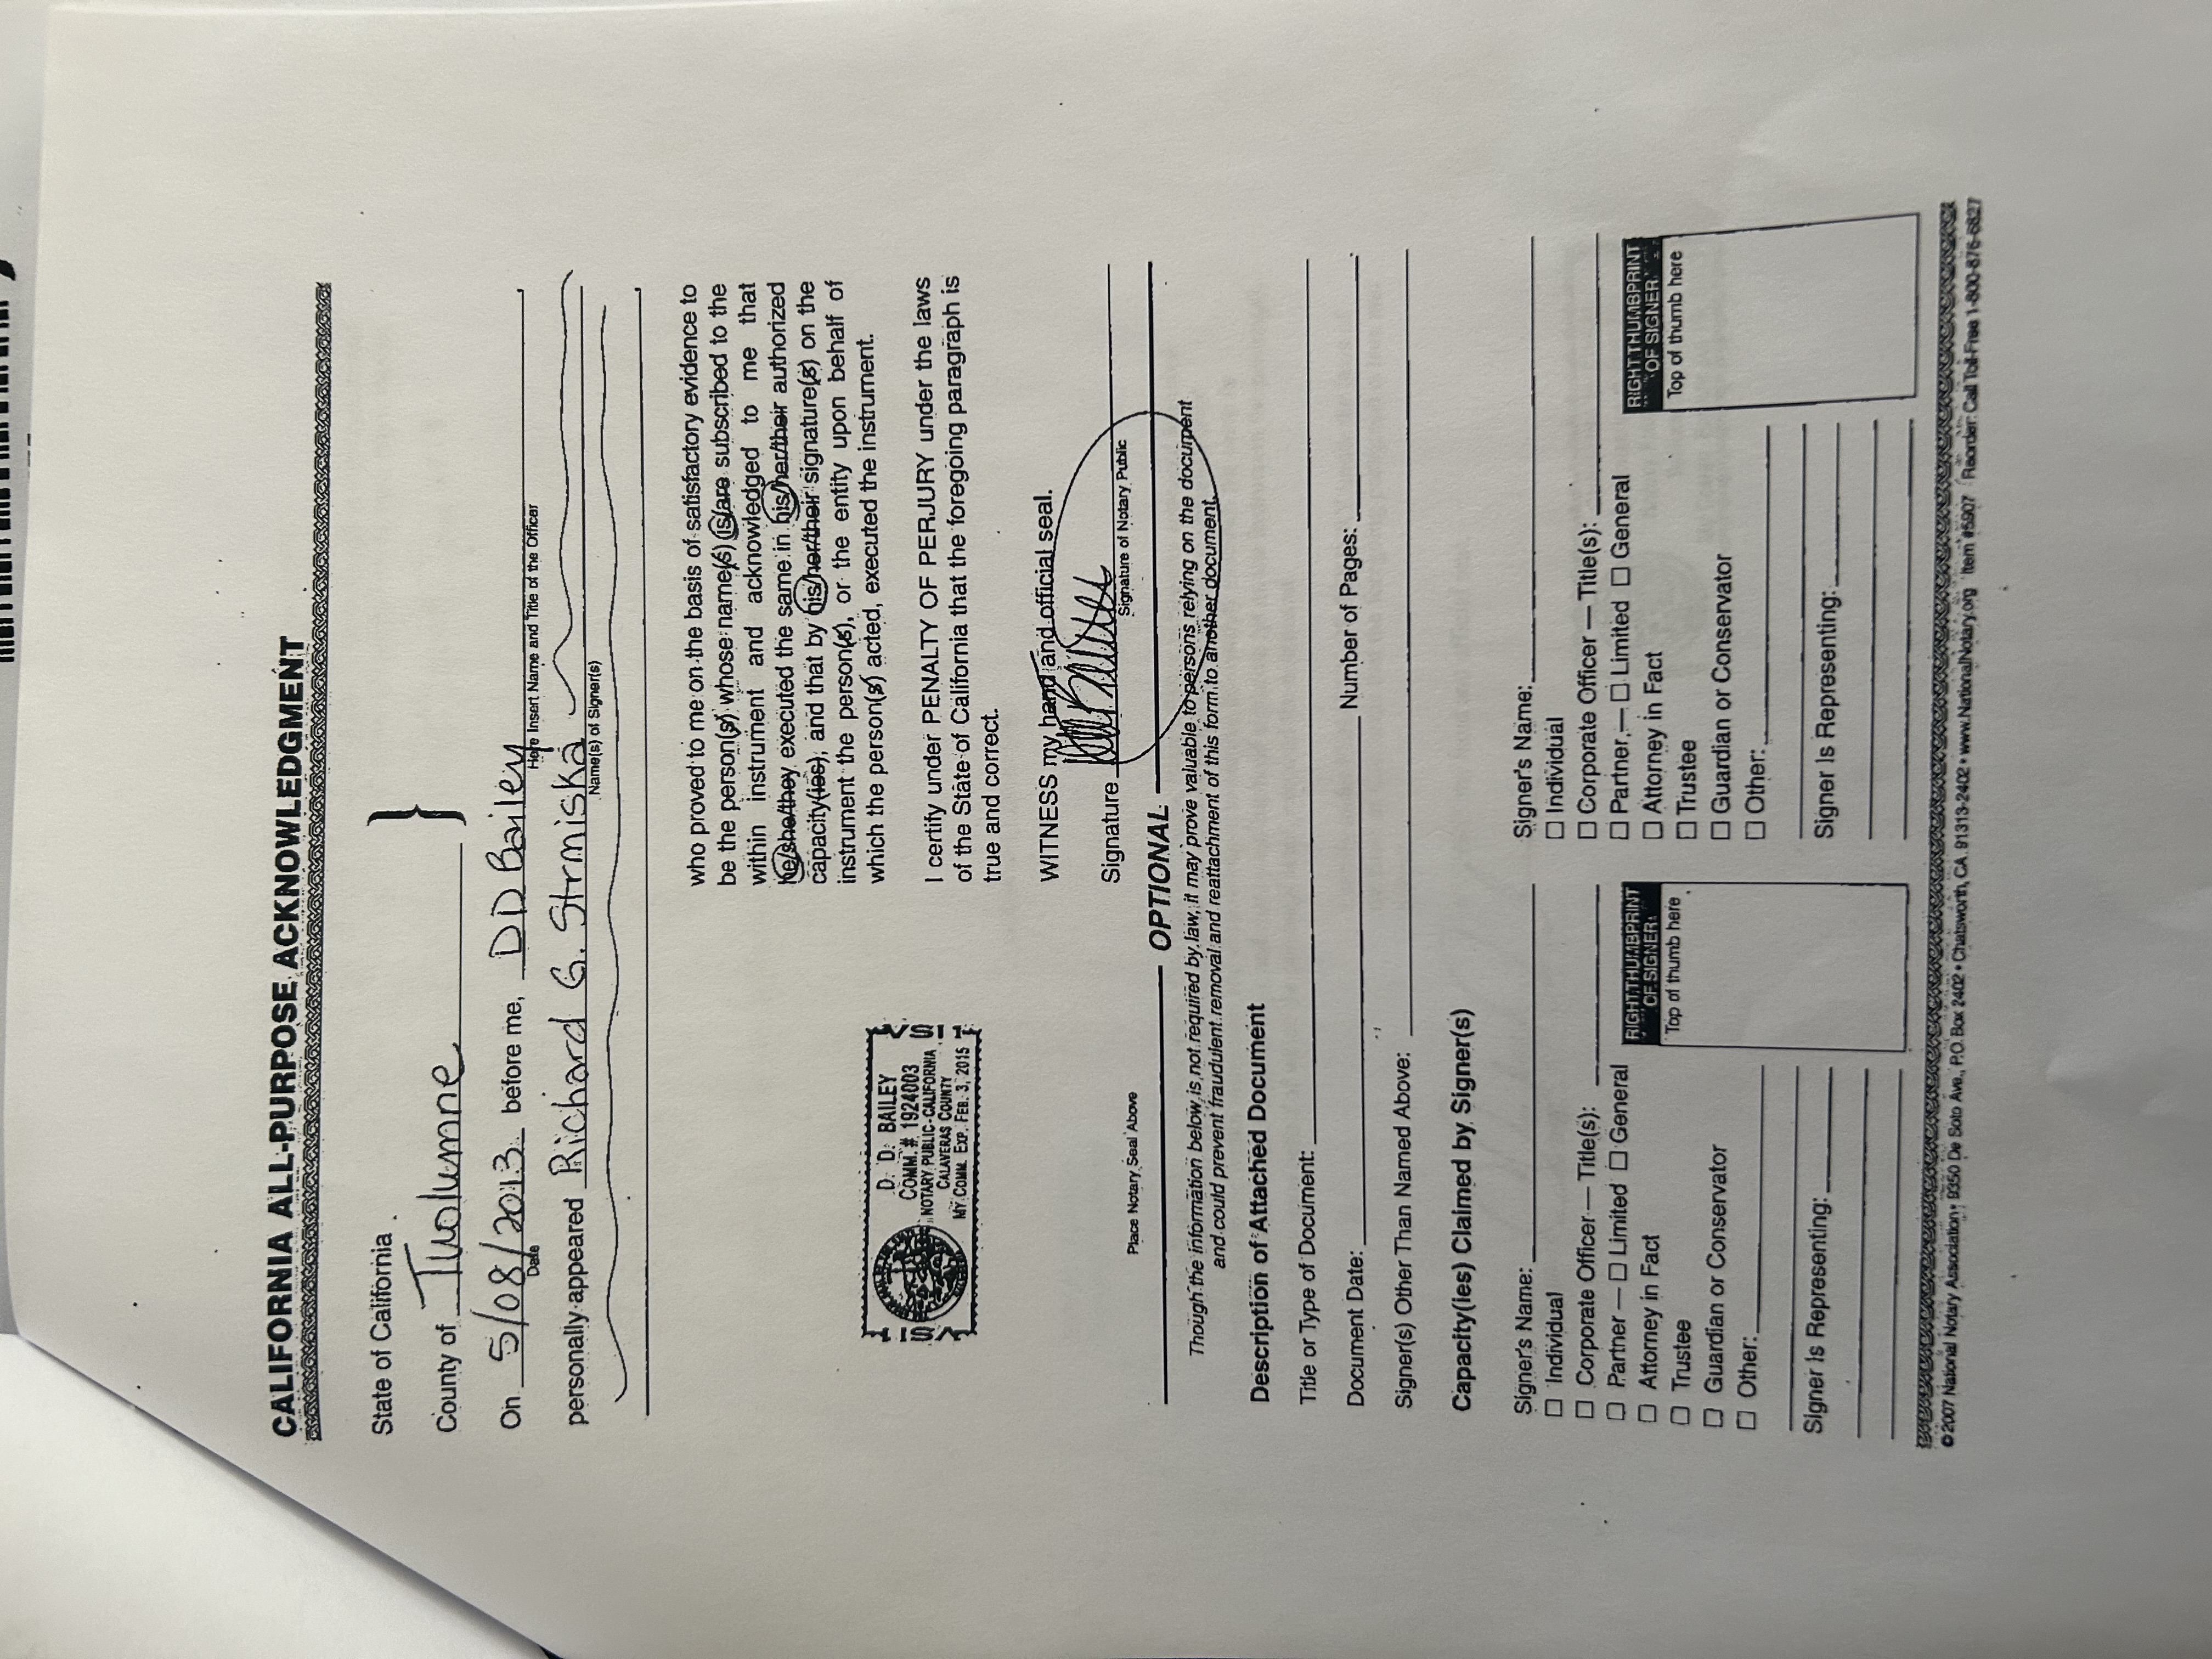 CALIFORNIA ALL-PURPOSE ACKNOWLEDGMENT
State of California
County of Tuolumne
On 5/08/2013 before me, DD Bailey,
Date
Here Insert Name and Title of the Officer
personally appeared Richard G. Strmiska
Name(s) of Signer(s)
who proved to me on the basis of satisfactory evidence to
be the person(s) whose name(s) is/are subscribed to the
within instrument and acknowledged to me that
he/she/they executed the same in his/her/their authorized
capacity(ies), and that by his/her/their signature(s) on the
instrument the person(s), or the entity upon behalf of
which the person(s) acted, executed the instrument.
D. D. BAILEY
COMM. # 1924003
NOTARY PUBLIC-CALIFORNIA
CALAVERAS COUNTY
MY COMM. EXP. FEB. 3, 2015
I certify under PENALTY OF PERJURY under the laws
of the State of California that the foregoing paragraph is
true and correct.
WITNESS my hand and official seal.
Signature
Signature of Notary Public
Place Notary Seal Above
OPTIONAL
Though the information below is not required by law, it may prove valuable to persons relying on the document
and could prevent fraudulent removal and reattachment of this form to another document.
Description of Attached Document
Title or Type of Document:
Document Date: Number of Pages:
Signer(s) Other Than Named Above:
Capacity(ies) Claimed by Signer(s)
Signer's Name:
☐ Individual
☐ Corporate Officer — Title(s):
☐ Partner — ☐ Limited ☐ General
☐ Attorney in Fact
☐ Trustee
☐ Guardian or Conservator
☐ Other:
Signer Is Representing:
RIGHT THUMBPRINT
OF SIGNER
Top of thumb here
Signer's Name:
☐ Individual
☐ Corporate Officer — Title(s):
☐ Partner — ☐ Limited ☐ General
☐ Attorney in Fact
☐ Trustee
☐ Guardian or Conservator
☐ Other:
Signer Is Representing:
RIGHT THUMBPRINT
OF SIGNER
Top of thumb here
© 2007 National Notary Association • 9350 De Soto Ave., P.O. Box 2402 • Chatsworth, CA 91313-2402 • www.NationalNotary.org Item #5907 Reorder: Call Toll-Free 1-800-876-6827